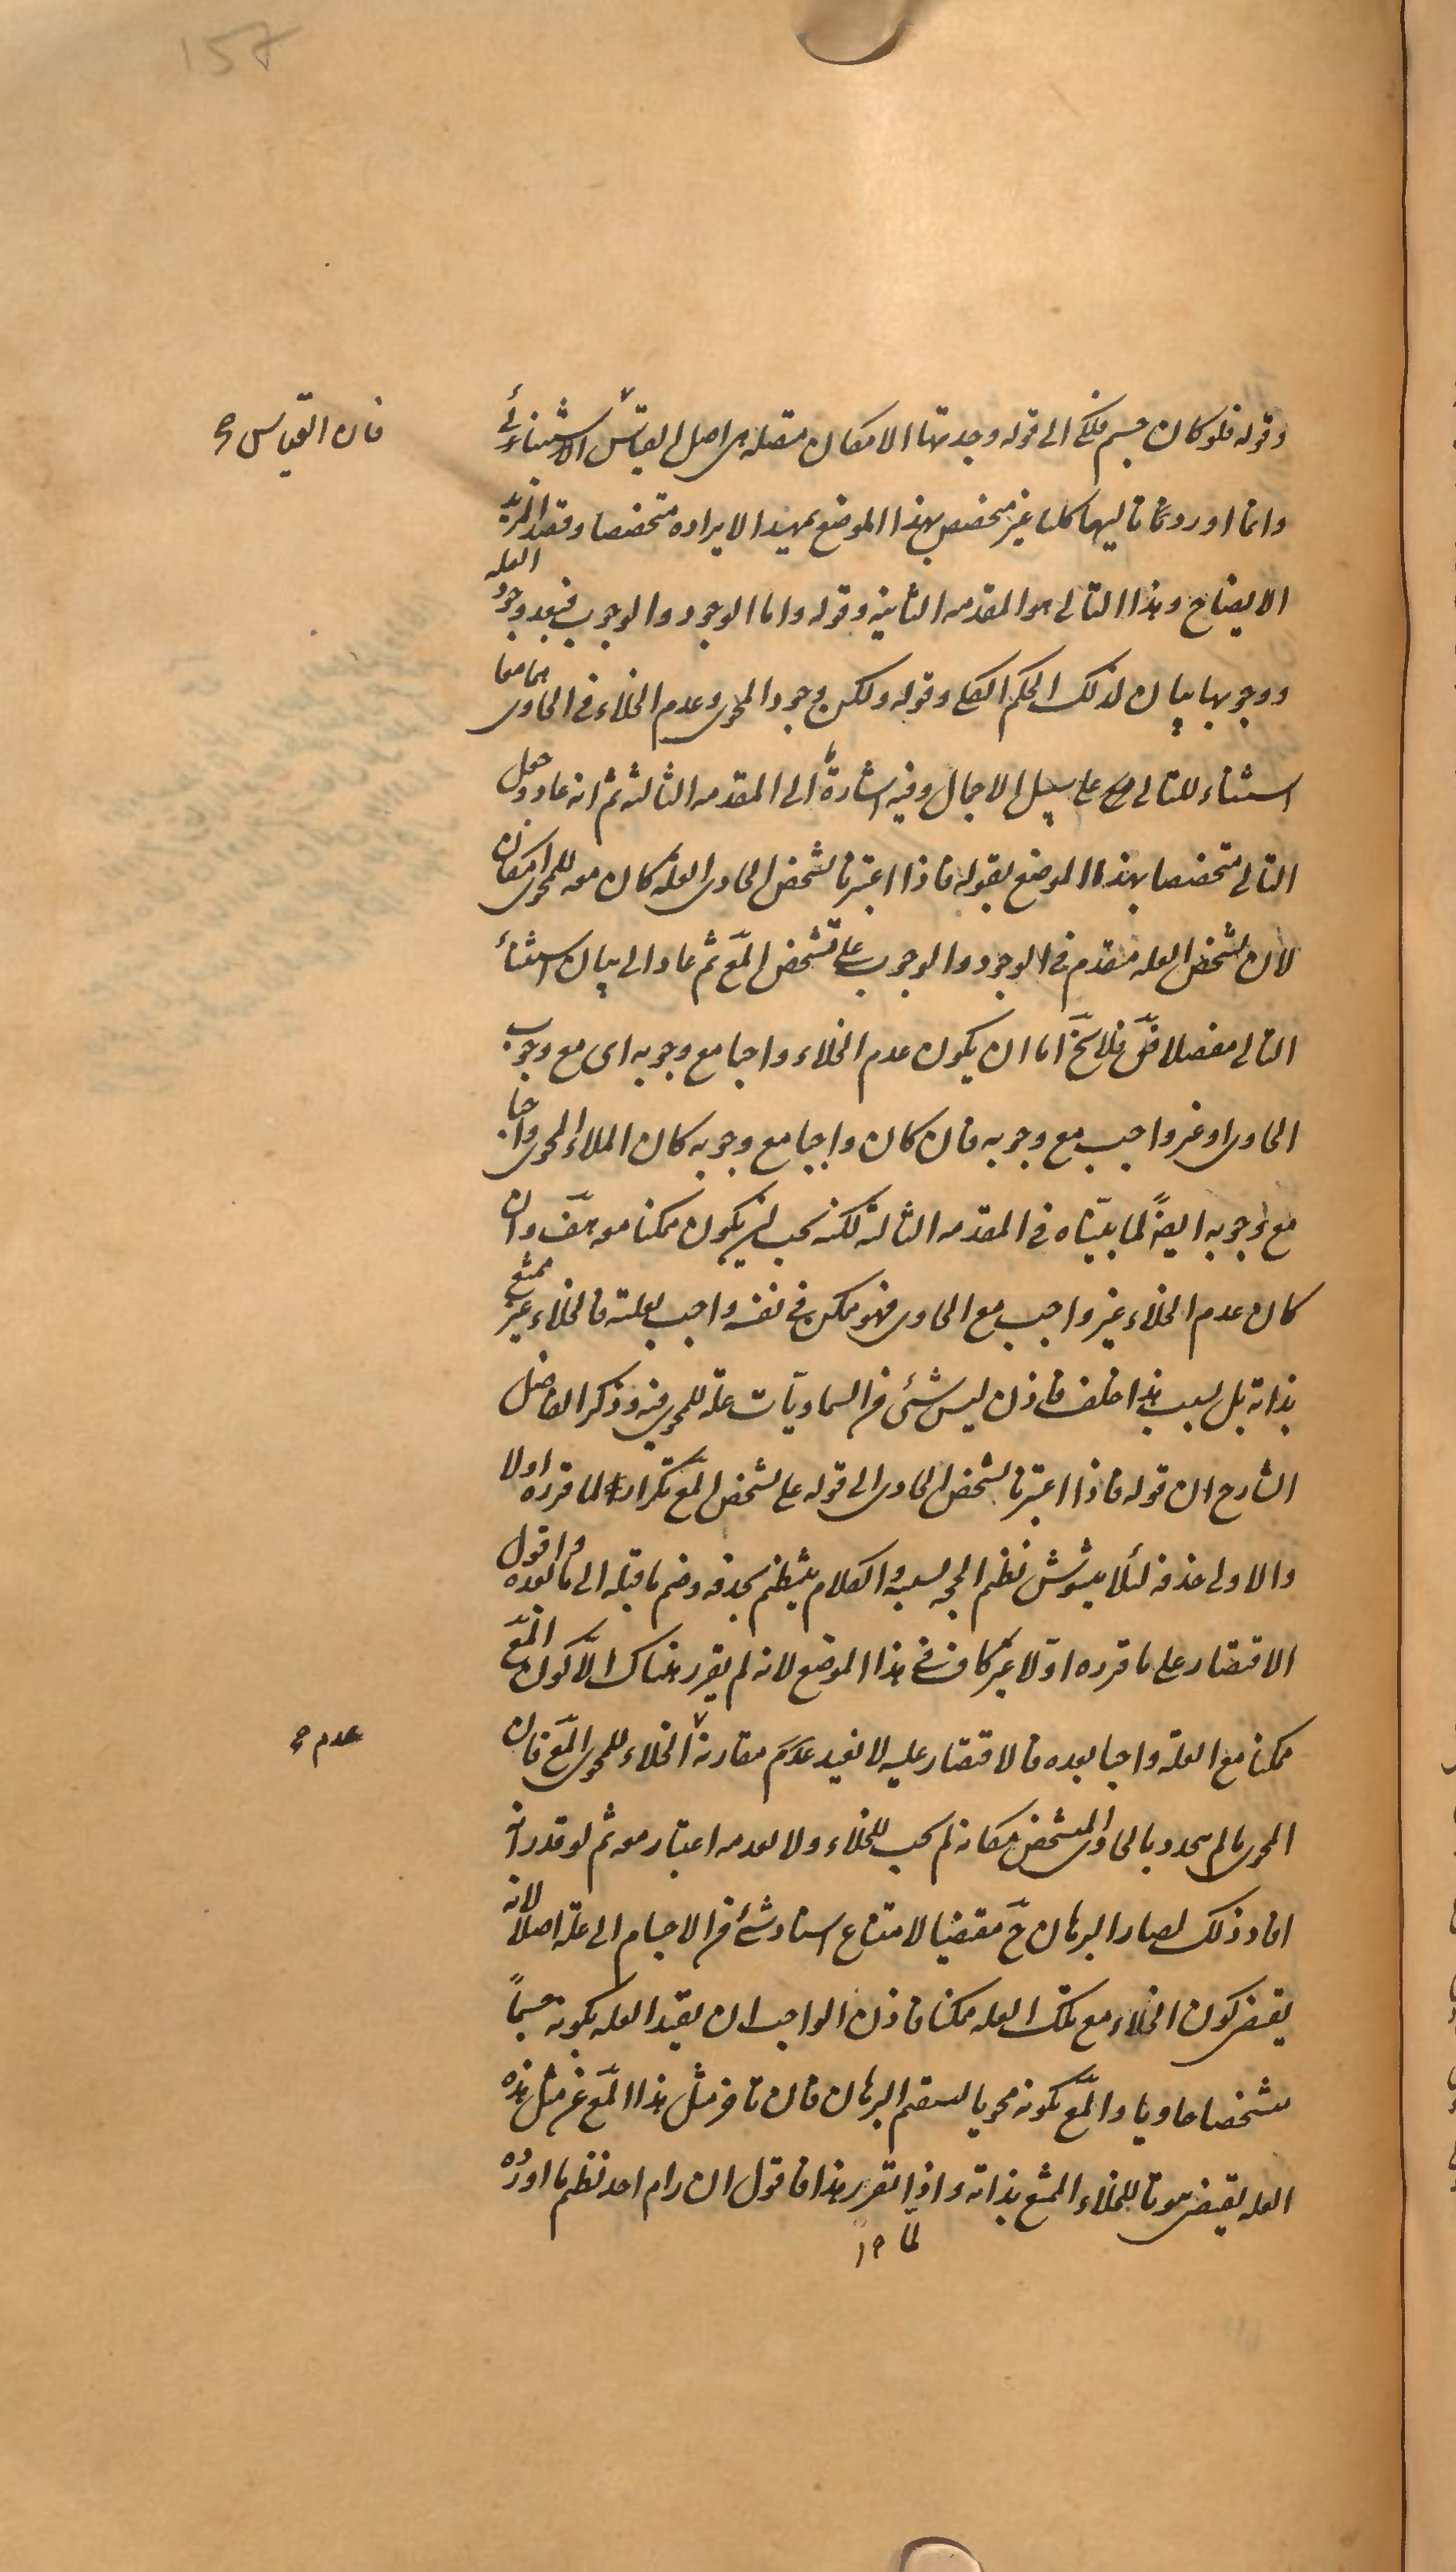 157
وقوله فلو كان جسم فلكى الى قوله وجدتها الامكان متصلة هى اصل القياس الاستثنائى
فان القياس صح
وانما اورد تاليها كليا غير متخصص بهذا الموضع تمهيدا لايراده متخصصا وقصد المزيد
الايضاح وهذا التالى هو المقدمه الثانيه وقوله واما الوجود والوجوب فبعد وجود العله
ووجوبها بيان لذلك الحكم الكلى وقوله ولكن وجود المحوى وعدم الخلاء فى الحاوى هما معا
استثناء للتالى على سبيل الاجمال وفيه اشارة الى المقدمه الثالثه ثم انه عاد وجعل
التالى متخصصا بهذا الموضع بقوله فاذا اعتبرنا تشخص الحاوى العله كان معه للمحوى امكان
لان تشخص العله متقدم فى الوجود والوجوب على تشخص المع ثم عاد الى بيان استثناء
التالى مفصلا فق فلا يخ اما ان يكون عدم الخلاء واجبا مع وجوبه اى مع وجوب
الحاوى او غير واجب مع وجوبه فان كان واجبا مع وجوبه كان الملاء المحوى واجبا
مع وجوبه ايضً لما بيّناه فى المقدمه الثالثه لكنه يجب ان يكون ممكنا معه هف وان
كان عدم الخلاء غير واجب مع الحاوى فهو ممكن فى نفسه واجب بعلته فالخلاء غير ممتنع
بذاته بل بسبب هذا خلف فاذن ليس شئ من السماويّات علة للمحوى فيه وذكر الفاضل
الشارح ان قوله فاذا اعتبرنا تشخص الحاوى الى قوله على تشخص المع تكرار لما قرره اولا
والاولى حذفه لئلا يتشوش نظم الحجه بسببه والكلام ينتظم بحذفه وضم ما قبله الى ما بعده واقول
الاقتصار على ما قرره اوّلا غير كاف فى هذا الموضع لانه لم يقرر هناك الّا كون المع
ممكنا مع العلة واجبا بعده فالاقتصار عليه لا يفيد عدم مقارنة الخلاء للمحوى المع فان
عدم صح
المحوى مالم يتحدد بالحاوى المتشخص مكانه لم يجب للخلاء ولا لعدمه اعتبار معه ثم لو قدر انه
افاد ذلك لصار البرهان ح مقتضيا لامتناع اسناد شئ من الاجسام الى علة اصلا لانه
يقتضى كون الخلاء مع تلك العله ممكنا فاذن الواجب ان يقيد العله بكونه جسماً
متشخصا حاويا والمع بكونه محويا ليستقيم البرهان فان تاخر مثل هذا المع عن مثل هذه
العله يقتضى هوتا للخلاء الممتنع بذاته واذا تقرر هذا فاقول ان رام احد نظم ما اورده